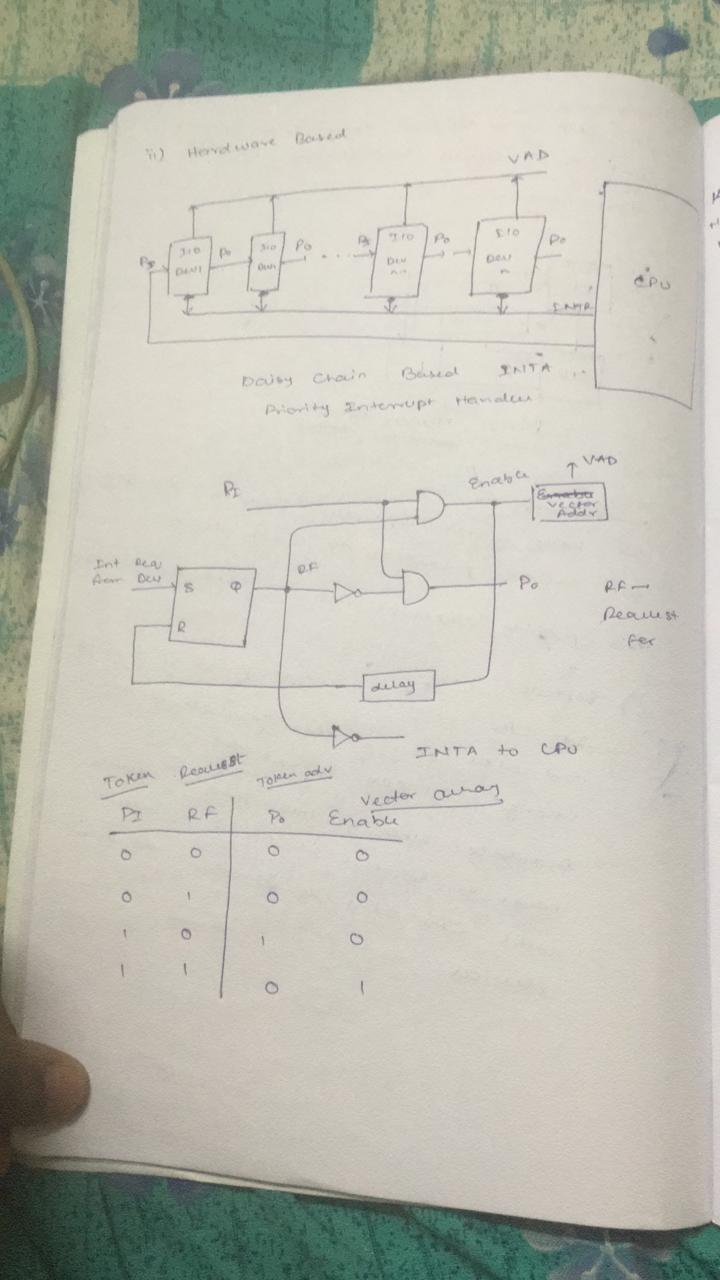 ii) Hardware Based
VAD
PI I/O Dev1 PO I/O Dev PO ... PI I/O Dev n-1 PO I/O Dev n PO
CPU
INTR
INTA
Daisy Chain Based
Priority Interrupt Handler
PI Enable VAD
Vector Addr
Int Req from Dev
S Q RF
R
PO
RF → Request
delay
INTA to CPU
Token Request Token adv Vector array
PI RF PO Enable
0 0 0 0
0 1 0 0
1 0 1 0
1 1 0 1